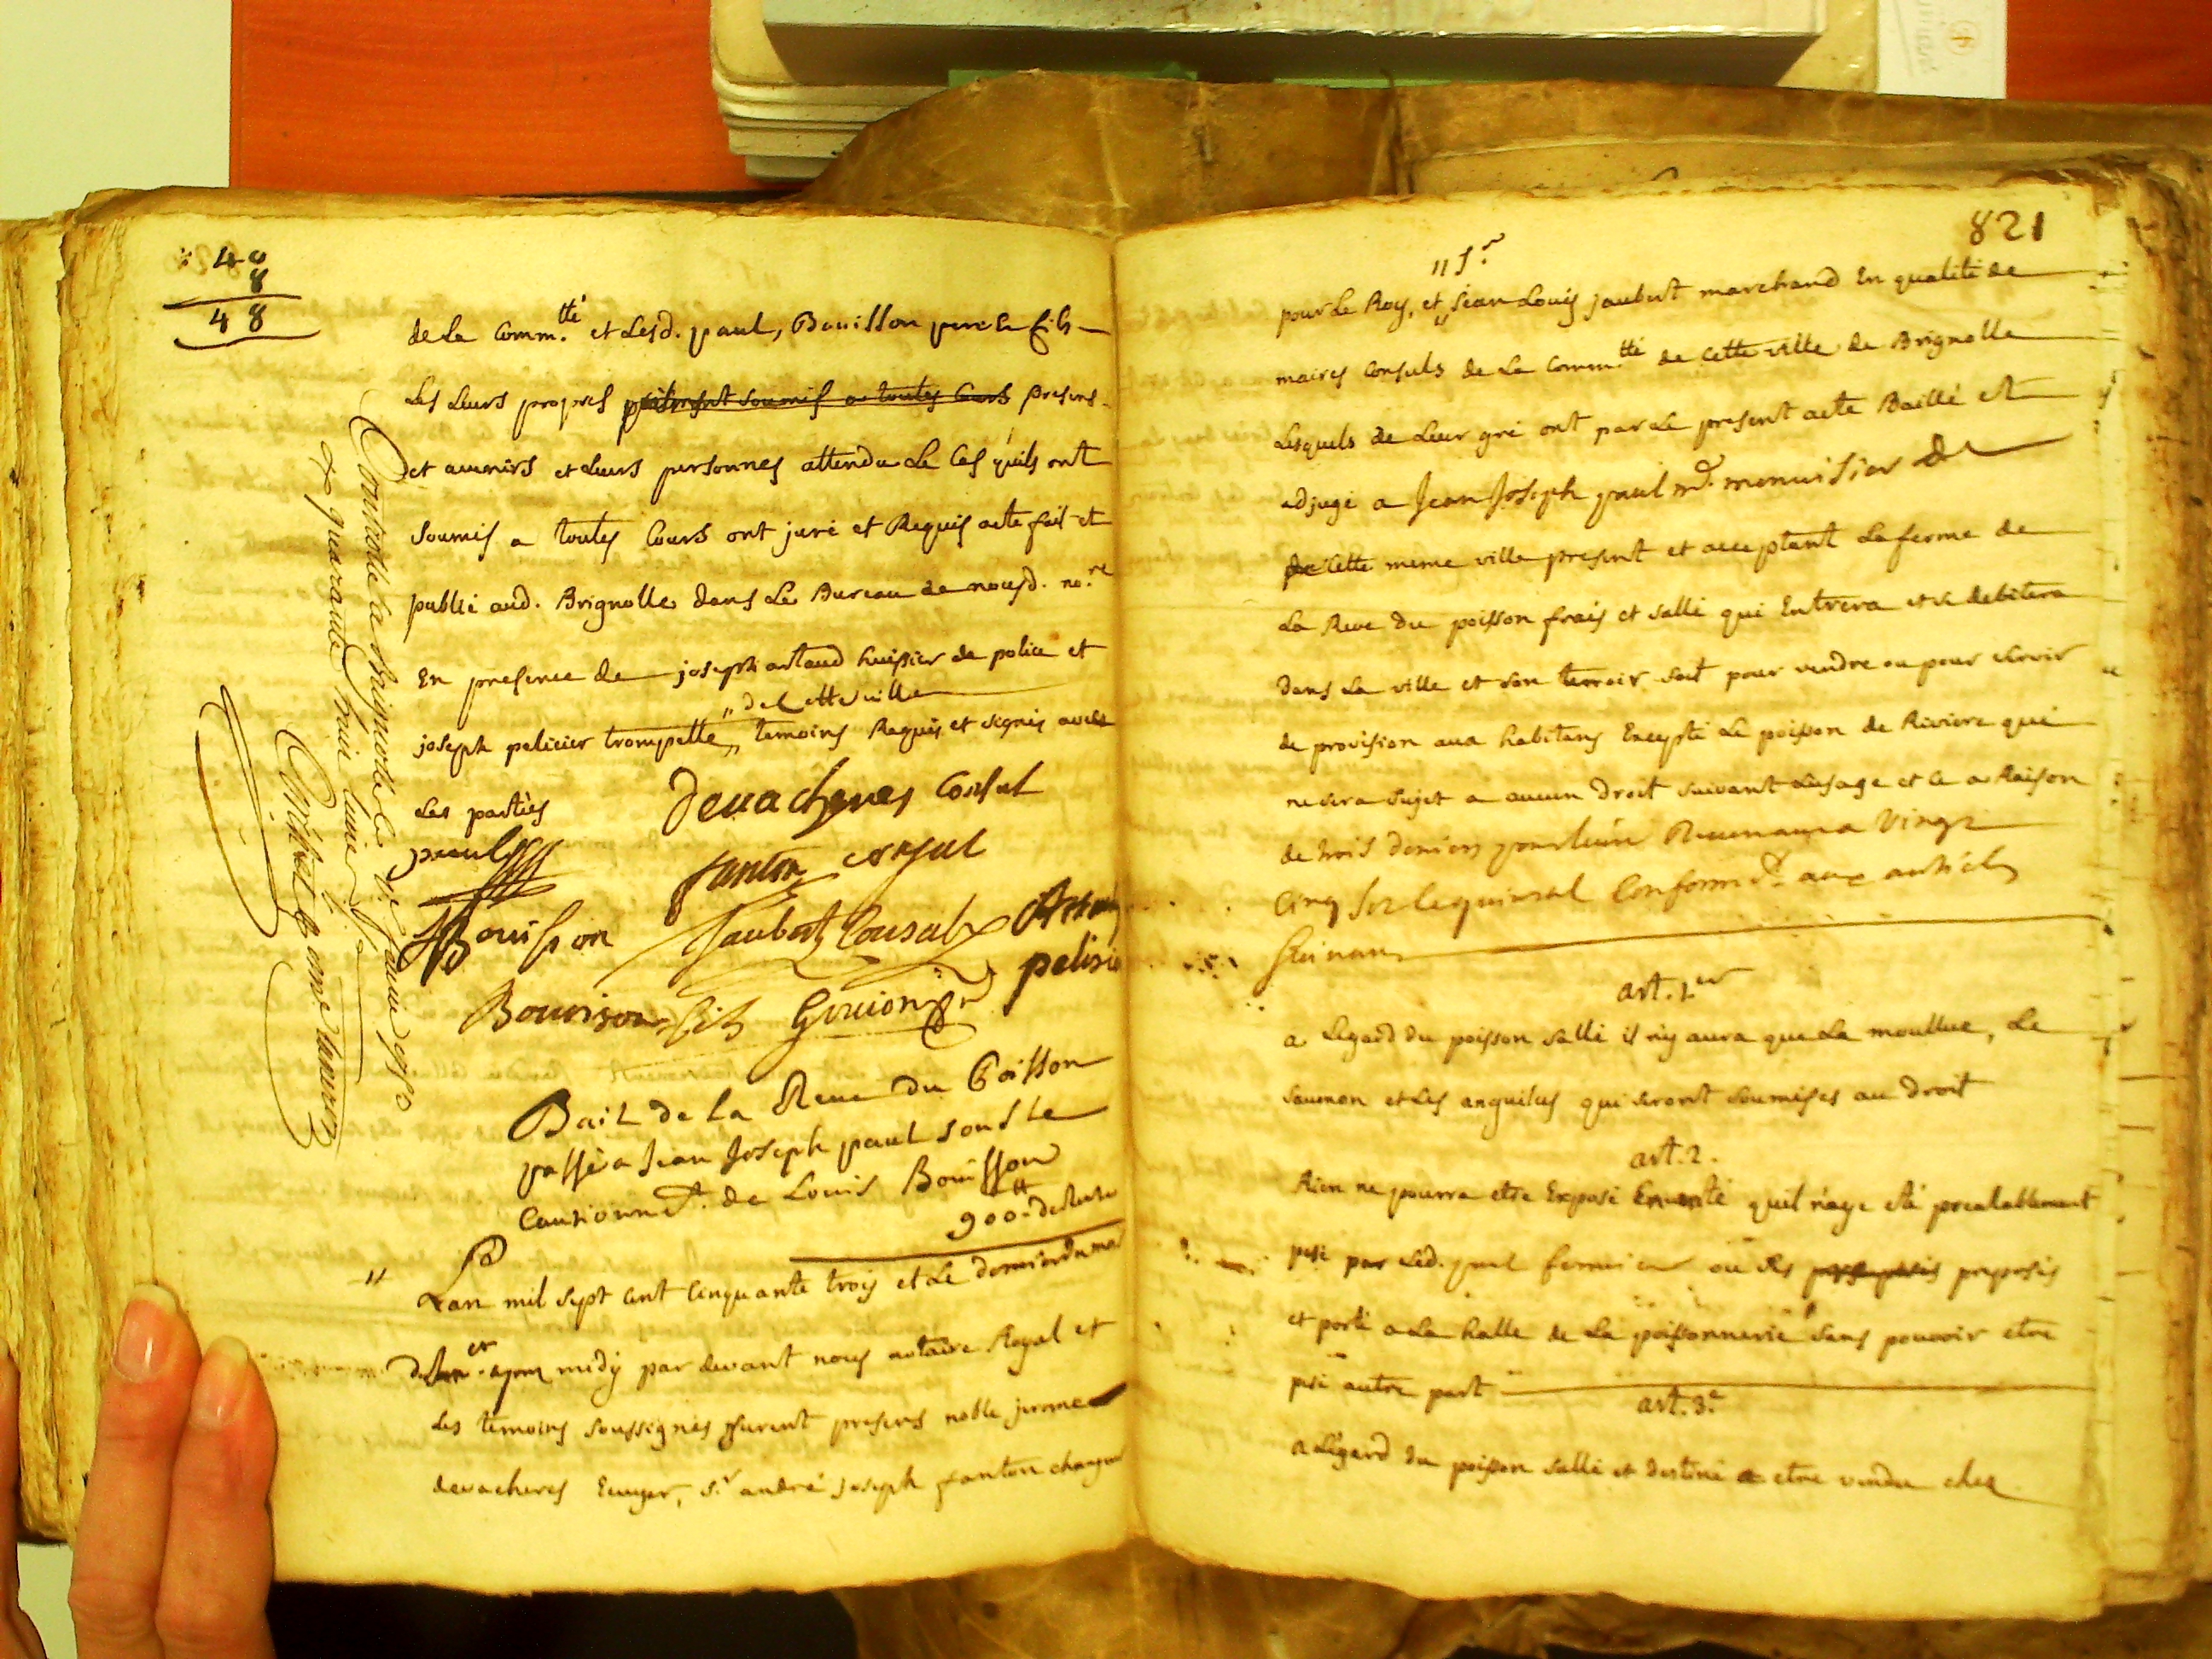 40
8
48
de la Comm.tté et Lesd. paul, Bouisson pere et fils
Les Leurs propres presens
et avenirs et Leurs personnes attendu Le Cas qu'ils ont
soumis a toutes Cours ont juré et Requis acte fait et
publié aud. Brignolle dans Le Bureau de nousd. no.re
En presence de joseph artaud huissier de police et
"de Cette ville
joseph pelicier trompette " temoins Requis et signés avec
Les parties
devacheres Consul
paul
fanton consul
Bouisson
Jaubert Consul
pelisier
Bouison fils
Bail de la Reve du Poisson
passé a Jean Joseph paul sous le
Cautionn.t de Louis Bouisson
900 tt de Rente
Controlé a Brignolle le
& quarante huit
" Lan mil sept cent Cinquante trois et Le dernier du mois
apres midy par devant nous notaire Royal et
Les temoins soussignés furent presens noble jerome
devacheres Ecuyer, s.r andré joseph fanton changeur
821
" s.r
pour Le Roy, et " jean Louis jaubert marchand En qualité de
maires Consuls de La Comm.tté de Cette ville de Brignolle
Lesquels de Leur gré ont par Le present acte Baillé et
adjugé a Jean Joseph paul m.d menuisier de
Cette meme ville present et acceptant La ferme de
La Reve du poisson frais et sallé qui Entrera et se debitera
dans La ville et son terroir soit pour vendre ou pour servir
de provision aux habitans Excepté Le poisson de Riviere qui
ne sera sujet a aucun droit suivant Lusage et ce a Raison
de trois deniers pour Livre Revenant a vingt
Cinq sos le quintal Conform.t aux articles
suivans
art. 1.er
a Legard du poisson sallé il n'y aura que La moullue, Le
saumon et Les anguilles qui seront soumises au droit
art. 2.
Rien ne pourra etre Exposé Envente quil n'aye eté prealablement
pesé par Led. paul fermier ou ses preposés
et porté a La halle de La poissonnerie sans pouvoir etre
pesé autre part
art. 3.e
a Légard du poisson sallé et destiné a etre vendu chez